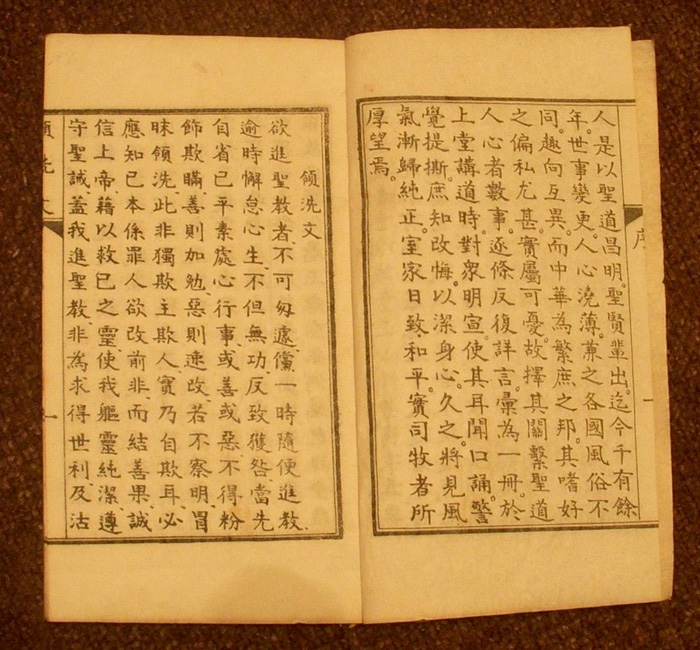 序
人是以聖道昌明。聖賢輩出。迄今千有餘
年。世事變更。人心澆薄。兼之各國風俗不
同。趣向互異。而中華為繁庶之邦。其嗜好
之偏私尤甚。實屬可憂。故擇其關繫聖道
人心者數事。逐條反復詳言。彙為一冊。於
上堂講道時。對衆明宣。使其耳聞口誦。警
覺提撕。庶知改悔。以潔身心。久之。將見風
氣漸歸純正。室家日致和平。實司牧者所
厚望焉。
領洗文
欲進聖教者、不可匆遽、儻一時隨便進教、
逾時懈怠心生、不但無功、反致獲咎、當先
自省已平素處心行事、或善或惡、不得粉
飾欺瞞、善則加勉、惡則速改、若不察明、冒
昧領洗、此非獨欺主欺人、實乃自欺耳、必
應知已本係罪人、欲改前非、而結善果、誠
信上帝、藉以救已之靈、使我軀靈純潔、遵
守聖誡、蓋我進聖教、非為求得世利、及沽
領洗文
一